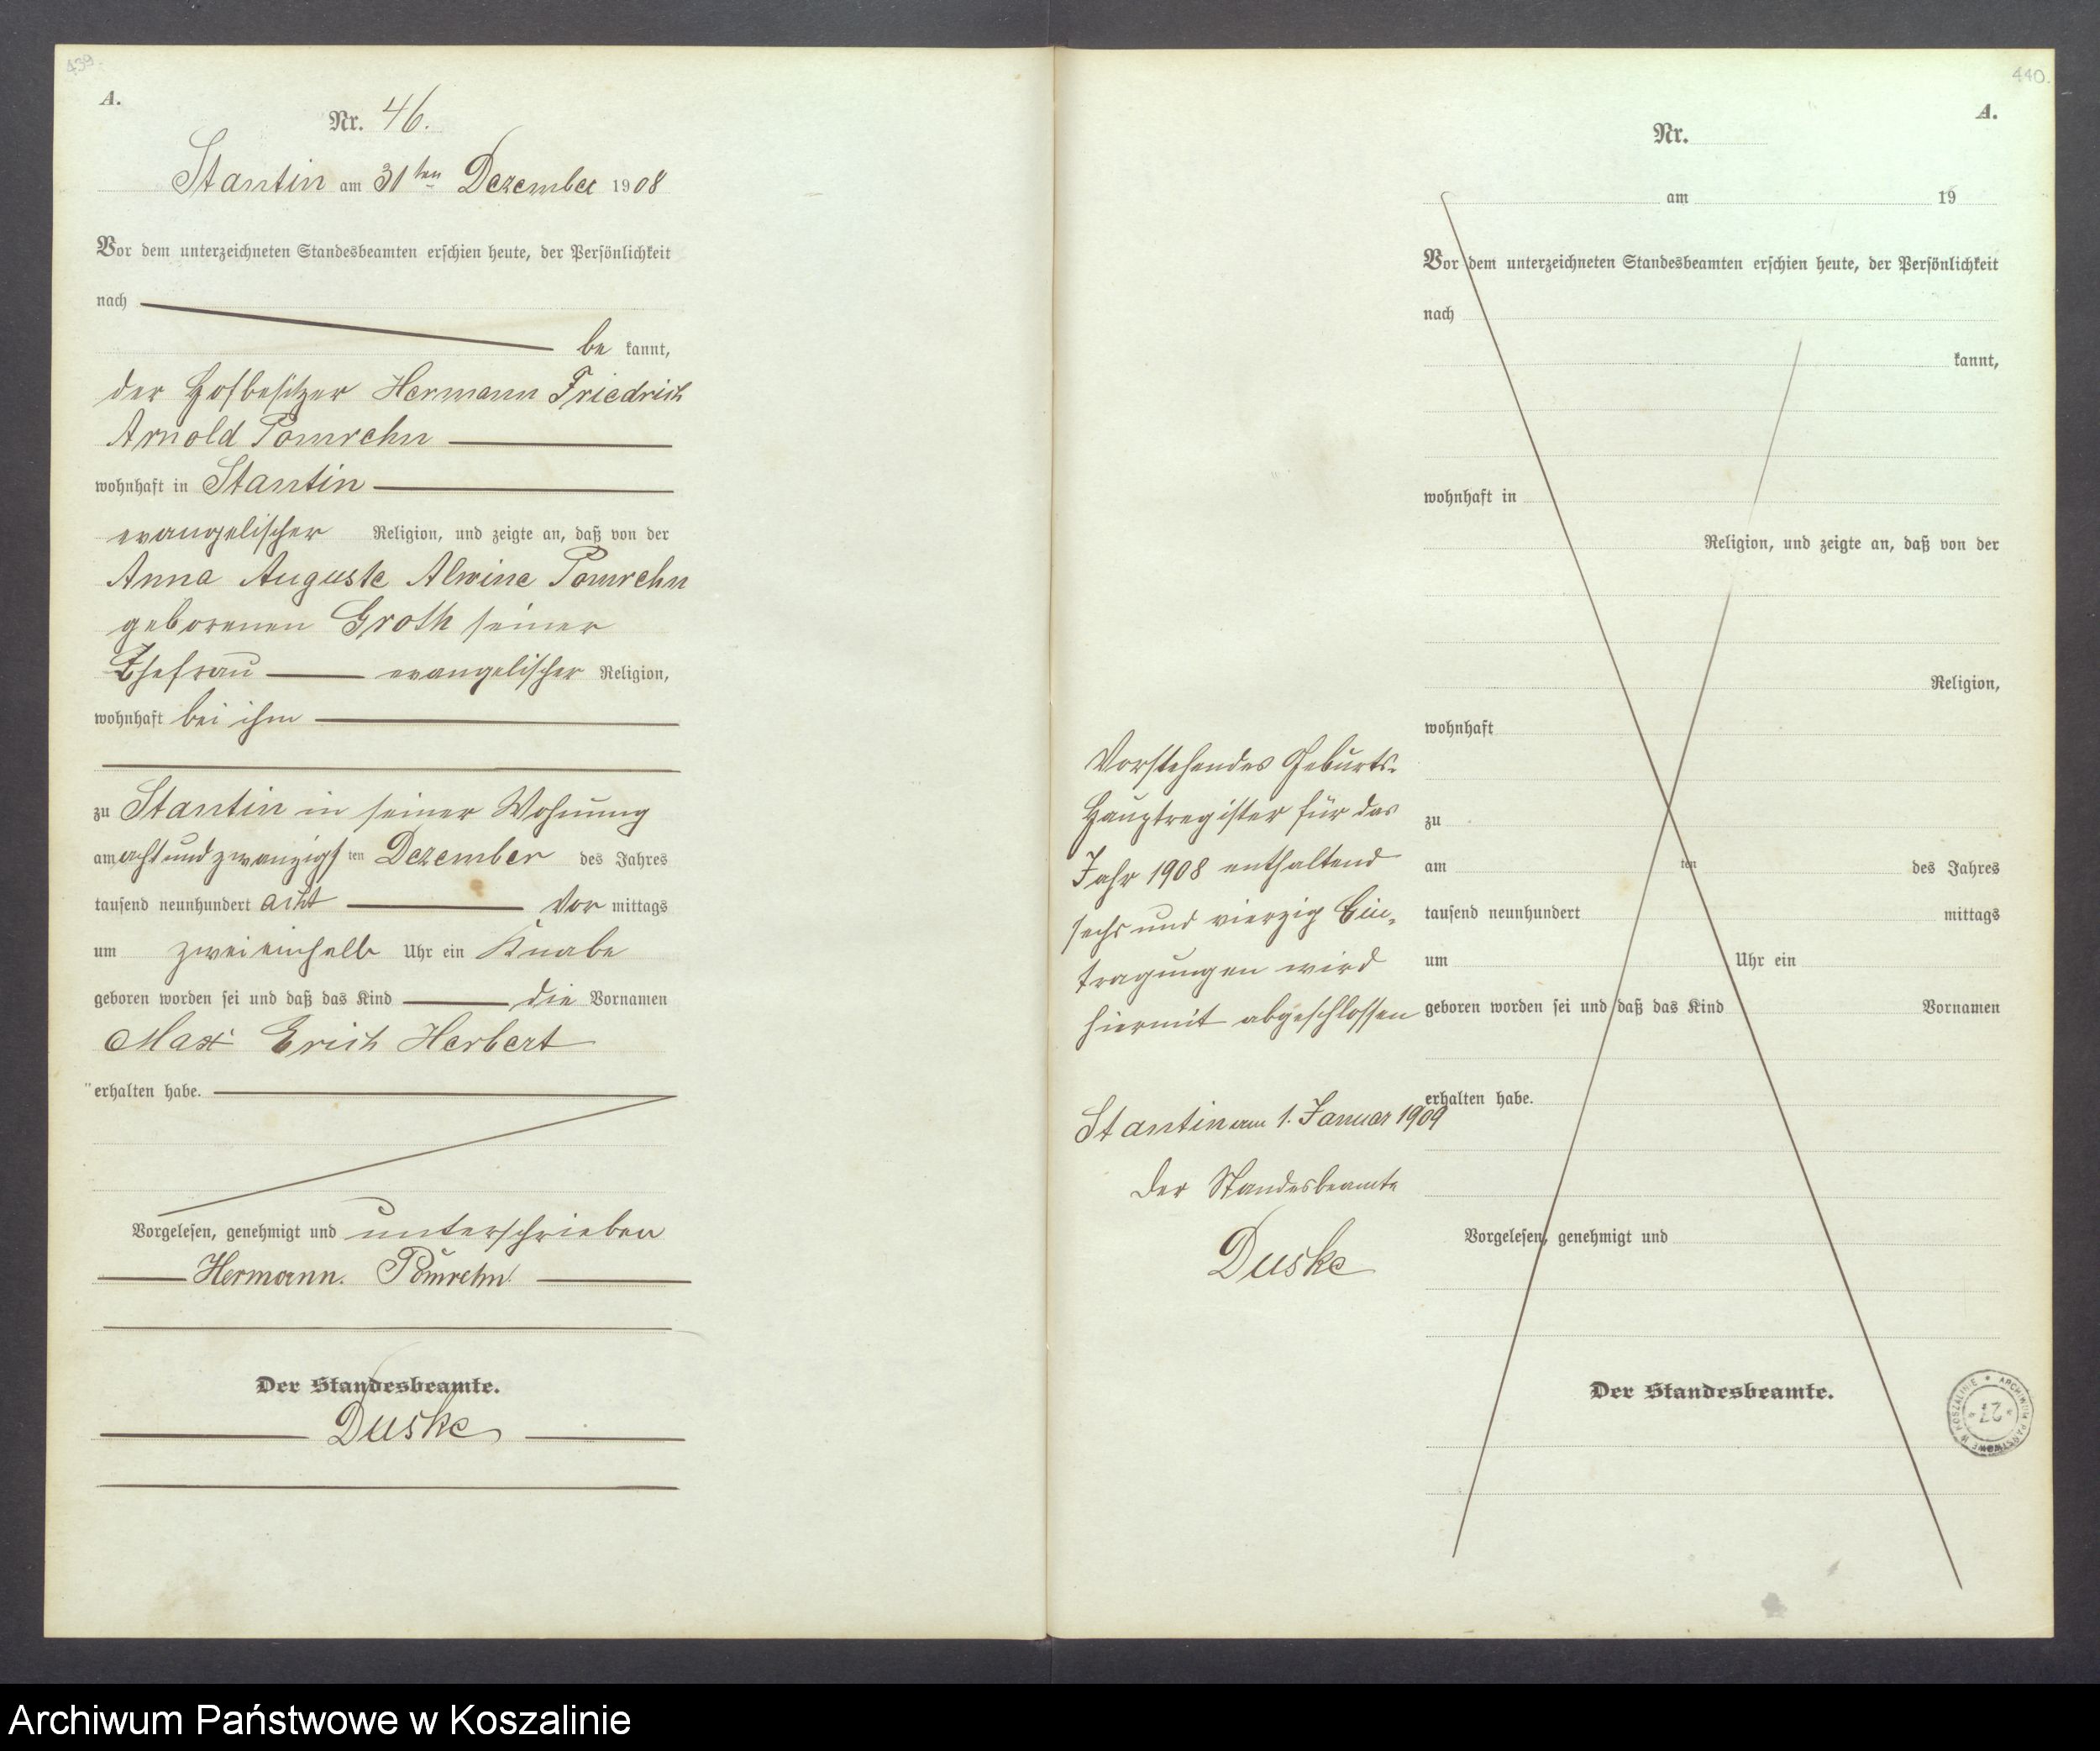 439.
A.
Nr. 46.
Stantin am 31ten Dezember 1908
Vor dem unterzeichneten Standesbeamten erschien heute, der Persönlichkeit
nach
be kannt,
der Hofbesitzer Hermann Friedrich
Arnold Pomrehn
wohnhaft in Stantin
evangelischer Religion, und zeigte an, daß von der
Anna Auguste Alwine Pomrehn
geborenen Groth seiner
Ehefrau evangelischer Religion,
wohnhaft bei ihm
zu Stantin in seiner Wohnung
am achtundzwanzigsten Dezember des Jahres
tausend neunhundert acht Vor mittags
um zweieinhalb Uhr ein Knabe
geboren worden sei und daß das Kind die Vornamen
Max Erich Herbert
erhalten habe.
Vorgelesen, genehmigt und unterschrieben
Hermann. Pomrehn.
Der Standesbeamte.
Duske
440.
A.
Nr.
am 19
Vor dem unterzeichneten Standesbeamten erschien heute, der Persönlichkeit
nach
kannt,
wohnhaft in
Religion, und zeigte an, daß von der
Religion,
wohnhaft
zu
am ten des Jahres
tausend neunhundert mittags
um Uhr ein
geboren worden sei und daß das Kind Vornamen
erhalten habe.
Vorgelesen, genehmigt und
Der Standesbeamte.
Vorstehendes Geburts-
Hauptregister für das
Jahr 1908 enthaltend
sechs und vierzig Ein-
tragungen wird
hiermit abgeschlossen
Stantin am 1. Januar 1909
Der Standesbeamte
Duske
ARCHIWUM PAŃSTWOWE W KOSZALINIE
27
Archiwum Państwowe w Koszalinie